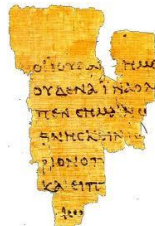 ΟΙ ΙΟΥΔΑΙ ΗΜΕ
ΟΥΔΕΝΑ ΙΝΑ Ο Λ
ΠΕΝ ϹΗΜΑΙΝ
ΘΝΗϹΚΕΙΝ
ΡΙΟΝ Ο Π
ΚΑΙ ΕΙΠ